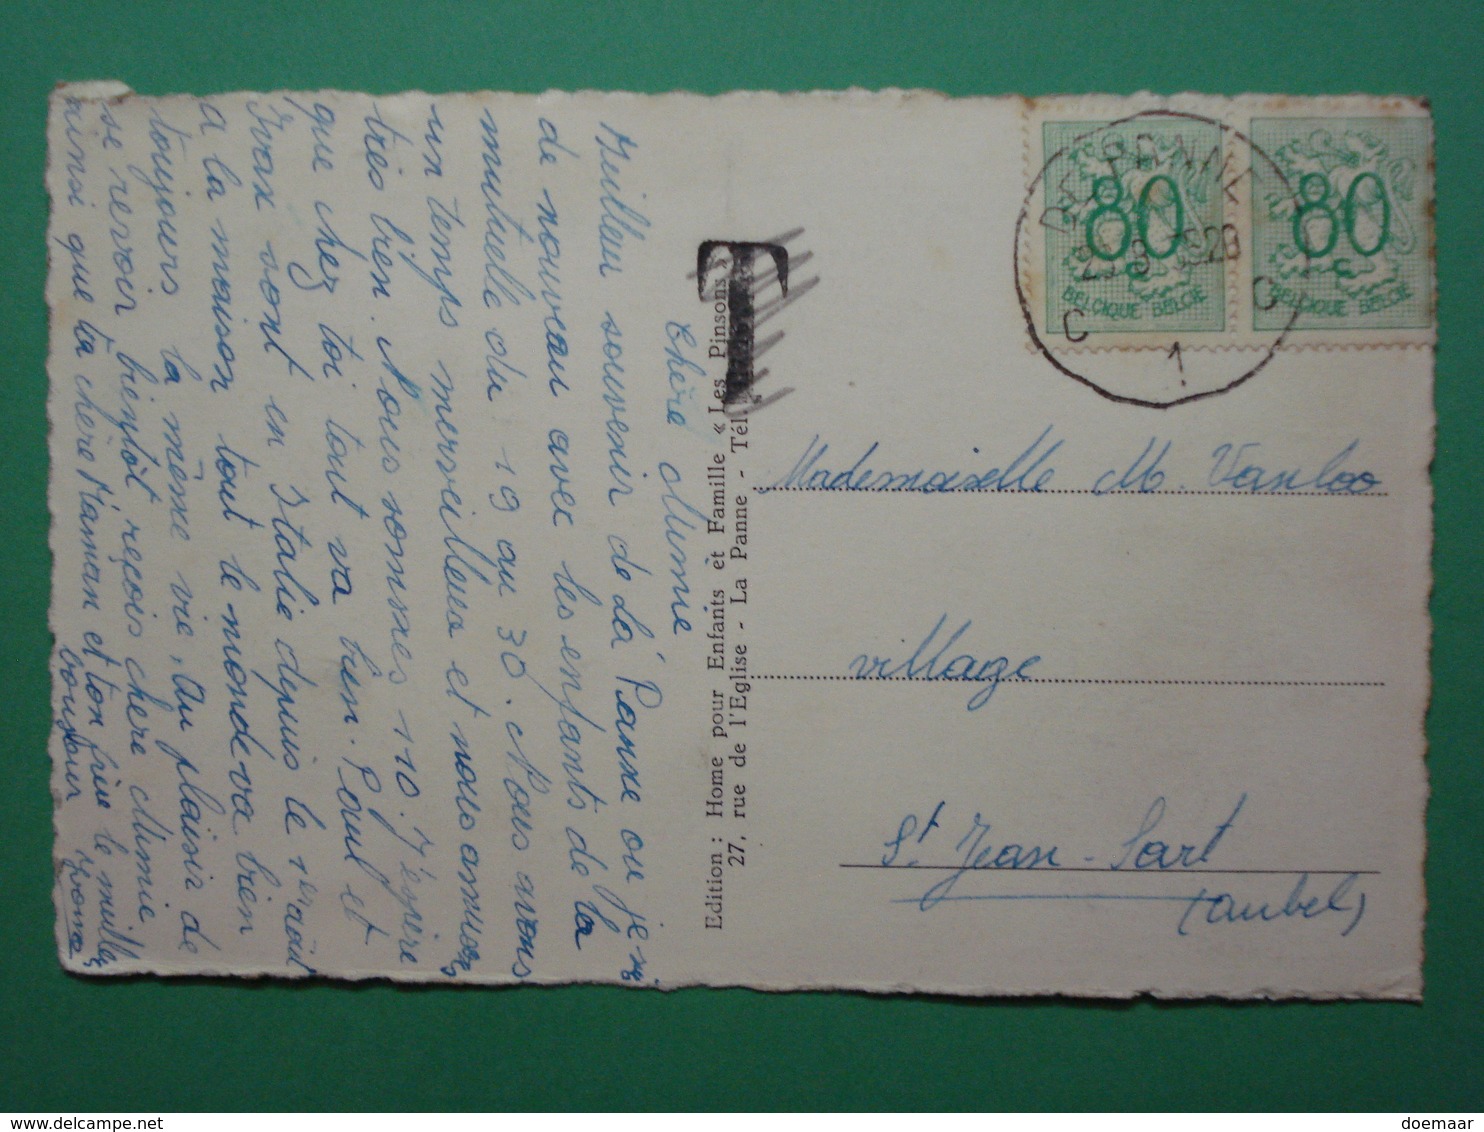 Chère Mimie
Meilleur souvenir de La Panne ou je suis
de nouveau avec les enfants de la
mutuelle du 19 au 30. Nous avons
un temps merveilleux et nous amusons
très bien. Nous sommes 110. J'espère
que chez toi tout va bien. Paul et
sont en Italie depuis le 1er août
a la maison tout le monde va bien
toujours la même vie. Au plaisir de
se revoir bientôt reçois chère Mimie
ainsi que ta chère Maman et ton frère le meilleur
bonjour
Edition : Home pour Enfants et Famille « Les Pinsons »
27, rue de l'Eglise - La Panne - Tél.
T
DE PANNE
C 1 C
80
BELGIQUE BELGIE
80
BELGIQUE BELGIE
Mademoiselle M. Vanloo
village
St Jean-Sart
(Aubel)
delcampe.net
doemaar